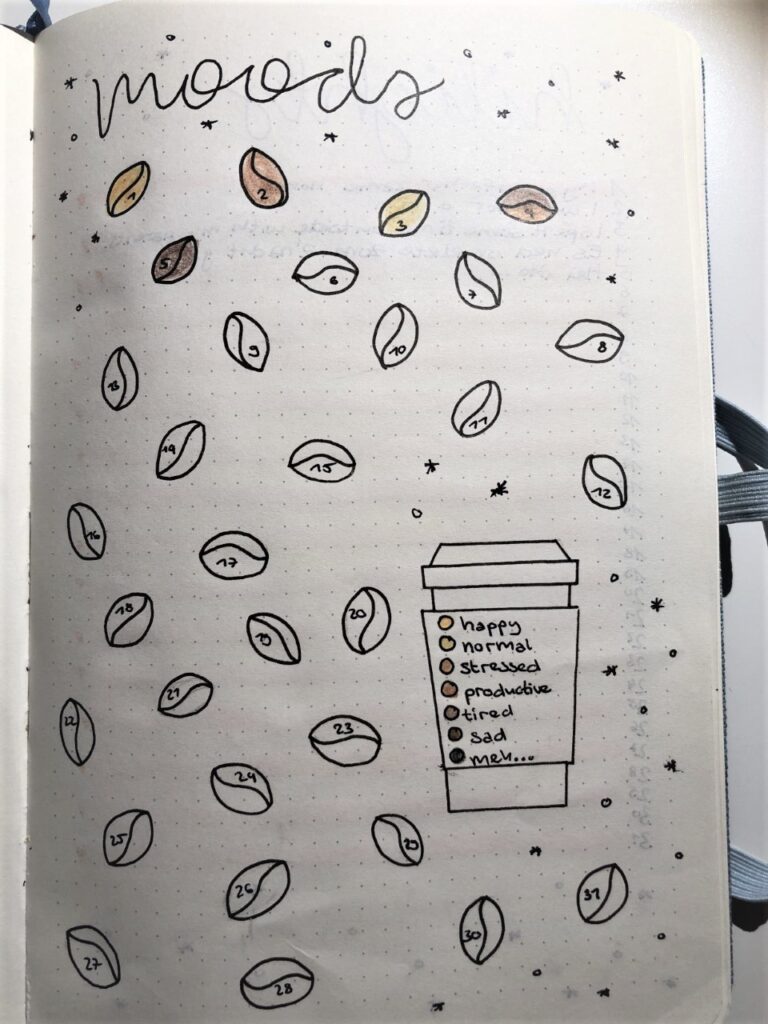 moods
1
2
3
4
5
6
7
8
9
10
11
12
13
14
15
16
17
18
19
20
happy
normal
stressed
productive
tired
sad
meh...
21
22
23
24
25
26
27
28
29
30
31